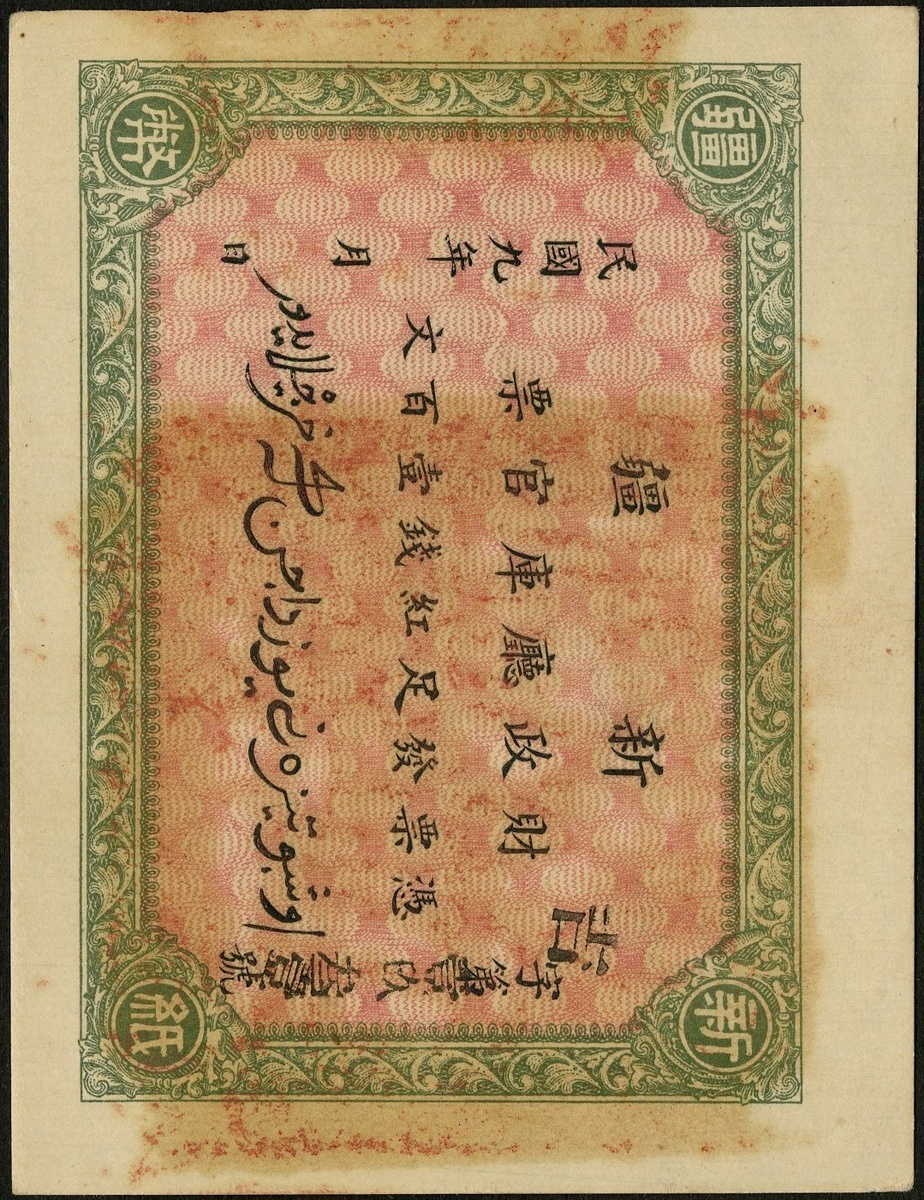 新疆
紙幣
新疆
財政廳庫官票
憑票發足紅錢壹百文
字第
號
民國九年
月
日
اوشبو تيزه نى يوز داچن